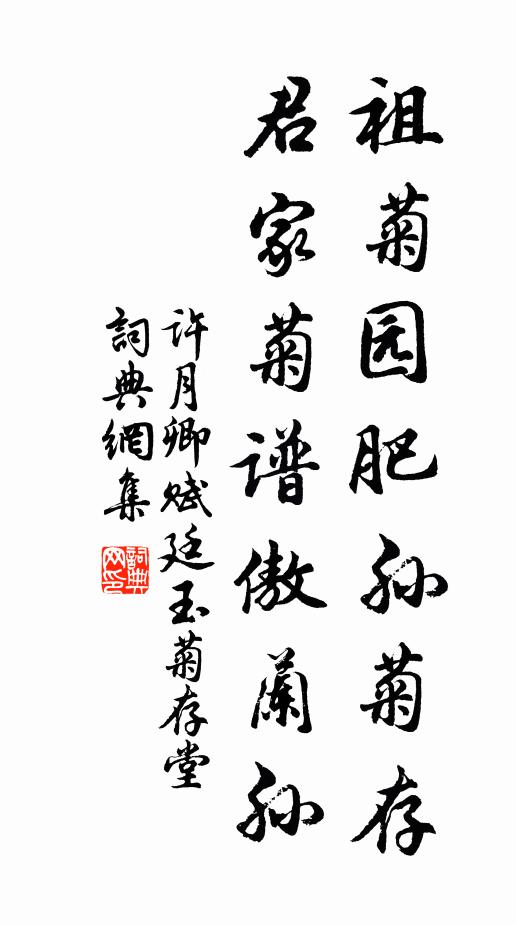 祖菊园肥孙菊存
君家菊谱傲蘭孙
许月卿赋廷玉菊存堂
詞典網集
詞典网印